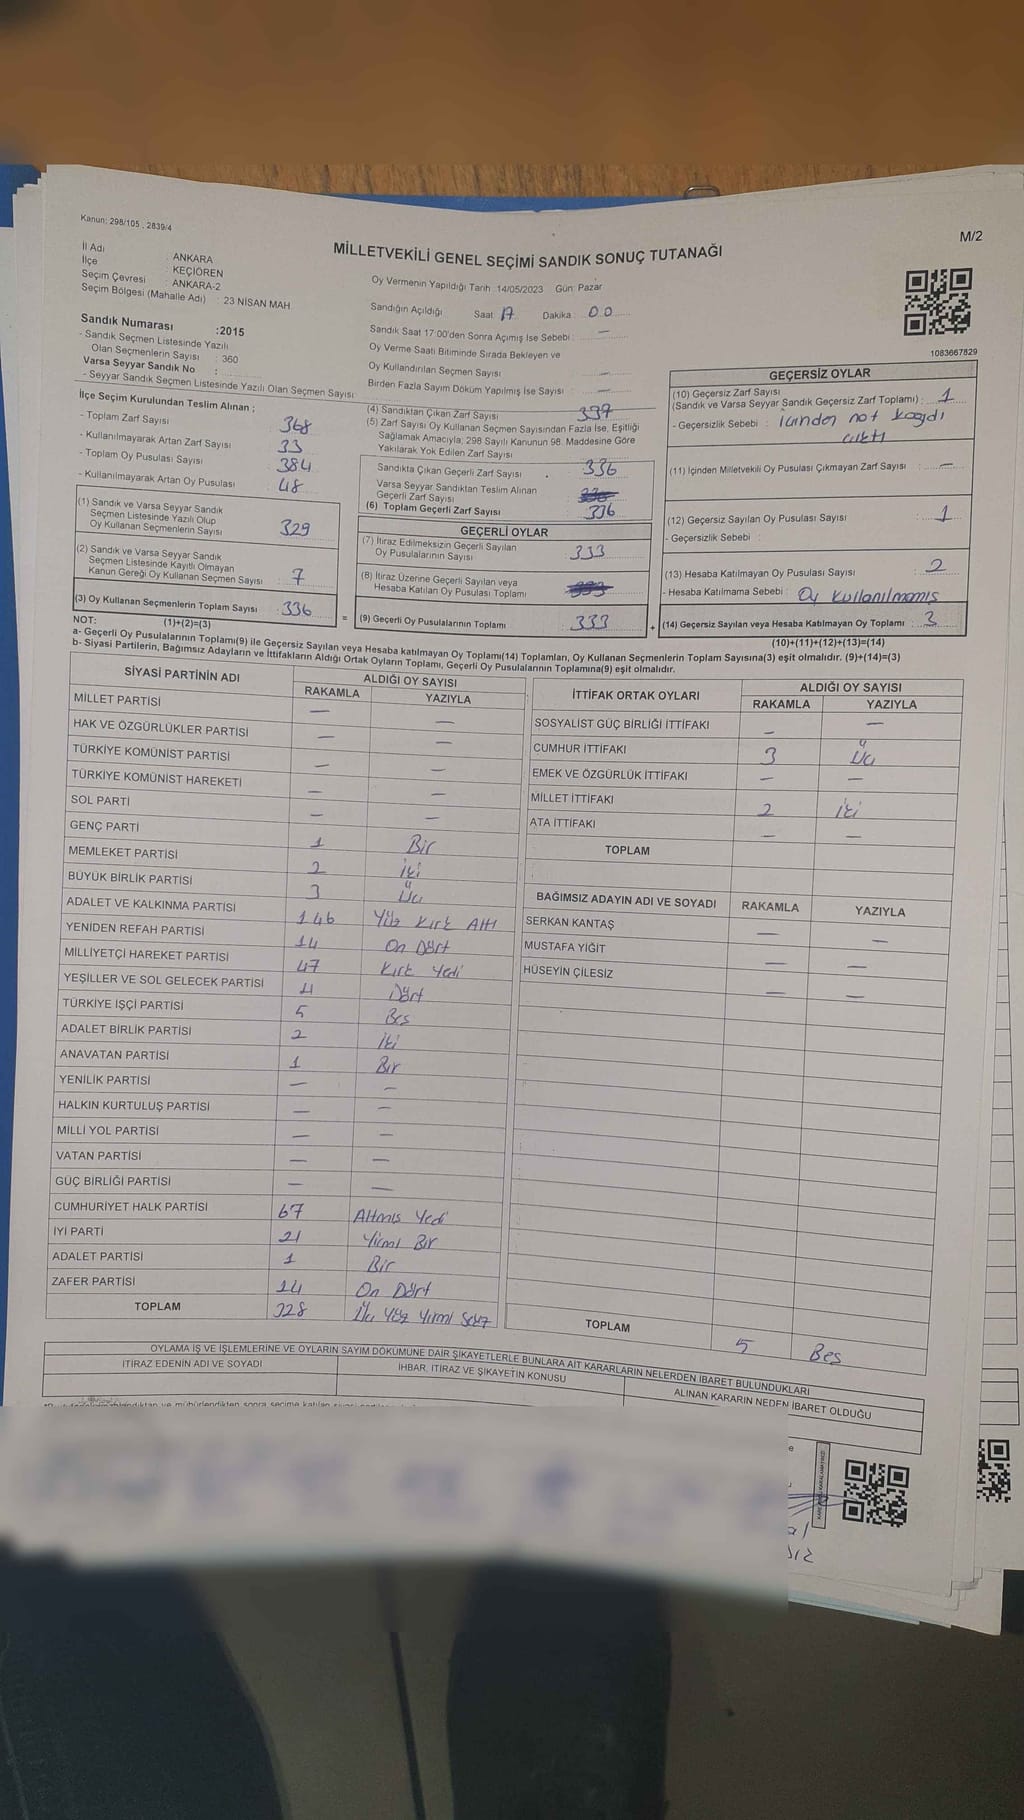 Kanun: 298/105 , 2839/4
M/2
MİLLETVEKİLİ GENEL SEÇİMİ SANDIK SONUÇ TUTANAĞI
İl Adı : ANKARA
İlçe : KEÇİÖREN
Seçim Çevresi : ANKARA-2
Seçim Bölgesi (Mahalle Adı) : 23 NİSAN MAH
Sandık Numarası :2015
- Sandık Seçmen Listesinde Yazılı
Olan Seçmenlerin Sayısı : 360
Varsa Seyyar Sandık No :
- Seyyar Sandık Seçmen Listesinde Yazılı Olan Seçmen Sayısı
Oy Vermenin Yapıldığı Tarih :14/05/2023 Gün: Pazar
Sandığın Açıldığı Saat 17 Dakika : 00
Sandık Saat 17:00'den Sonra Açımış İse Sebebi : —
Oy Verme Saati Bitiminde Sırada Bekleyen ve
Oy Kullandırılan Seçmen Sayısı : —
Birden Fazla Sayım Döküm Yapılmış İse Sayısı : —
1083667829
İlçe Seçim Kurulundan Teslim Alınan ;
- Toplam Zarf Sayısı : 368
- Kullanılmayarak Artan Zarf Sayısı : 33
- Toplam Oy Pusulası Sayısı : 384
- Kullanılmayarak Artan Oy Pusulası : 48
(1) Sandık ve Varsa Seyyar Sandık
Seçmen Listesinde Yazılı Olup
Oy Kullanan Seçmenlerin Sayısı : 329
(2) Sandık ve Varsa Seyyar Sandık
Seçmen Listesinde Kayıtlı Olmayan
Kanun Gereği Oy Kullanan Seçmen Sayısı : 7
(3) Oy Kullanan Seçmenlerin Toplam Sayısı : 336
(1)+(2)=(3)
(4) Sandıktan Çıkan Zarf Sayısı 337
(5) Zarf Sayısı Oy Kullanan Seçmen Sayısından Fazla İse, Eşitliği
Sağlamak Amacıyla; 298 Sayılı Kanunun 98. Maddesine Göre
Yakılarak Yok Edilen Zarf Sayısı
Sandıkta Çıkan Geçerli Zarf Sayısı 336
Varsa Seyyar Sandıktan Teslim Alınan
Geçerli Zarf Sayısı
(6) Toplam Geçerli Zarf Sayısı : 336
GEÇERLİ OYLAR
(7) İtiraz Edilmeksizin Geçerli Sayılan
Oy Pusulalarının Sayısı : 333
(8) İtiraz Üzerine Geçerli Sayılan veya
Hesaba Katılan Oy Pusulası Toplamı
= (9) Geçerli Oy Pusulalarının Toplamı : 333
GEÇERSİZ OYLAR
(10) Geçersiz Zarf Sayısı
(Sandık ve Varsa Seyyar Sandık Geçersiz Zarf Toplamı) : 1
- Geçersizlik Sebebi : içinden not kağıdı
çıktı
(11) İçinden Milletvekili Oy Pusulası Çıkmayan Zarf Sayısı : —
(12) Geçersiz Sayılan Oy Pusulası Sayısı : 1
- Geçersizlik Sebebi :
(13) Hesaba Katılmayan Oy Pusulası Sayısı : 2
- Hesaba Katılmama Sebebi : Oy kullanılmamış
+ (14) Geçersiz Sayılan veya Hesaba Katılmayan Oy Toplamı : 3
(10)+(11)+(12)+(13)=(14)
NOT:
a- Geçerli Oy Pusulalarının Toplamı(9) ile Geçersiz Sayılan veya Hesaba katılmayan Oy Toplamı(14) Toplamları, Oy Kullanan Seçmenlerin Toplam Sayısına(3) eşit olmalıdır. (9)+(14)=(3)
b- Siyasi Partilerin, Bağımsız Adayların ve İttifakların Aldığı Ortak Oyların Toplamı, Geçerli Oy Pusulalarının Toplamına(9) eşit olmalıdır.
SİYASİ PARTİNİN ADI ALDIĞI OY SAYISI
RAKAMLA YAZIYLA
MİLLET PARTİSİ — —
HAK VE ÖZGÜRLÜKLER PARTİSİ — —
TÜRKİYE KOMÜNİST PARTİSİ — —
TÜRKİYE KOMÜNİST HAREKETİ — —
SOL PARTİ — —
GENÇ PARTİ 1 Bir
MEMLEKET PARTİSİ 2 iki
BÜYÜK BİRLİK PARTİSİ 3 Üç
ADALET VE KALKINMA PARTİSİ 146 Yüz Kırk Altı
YENİDEN REFAH PARTİSİ 14 On Dört
MİLLİYETÇİ HAREKET PARTİSİ 47 Kırk Yedi
YEŞİLLER VE SOL GELECEK PARTİSİ 4 Dört
TÜRKİYE İŞÇİ PARTİSİ 5 Beş
ADALET BİRLİK PARTİSİ 2 iki
ANAVATAN PARTİSİ 1 Bir
YENİLİK PARTİSİ — —
HALKIN KURTULUŞ PARTİSİ — —
MİLLİ YOL PARTİSİ — —
VATAN PARTİSİ — —
GÜÇ BİRLİĞİ PARTİSİ — —
CUMHURİYET HALK PARTİSİ 67 Altmış Yedi
İYİ PARTİ 21 Yirmi Bir
ADALET PARTİSİ 1 Bir
ZAFER PARTİSİ 14 On Dört
TOPLAM 328 Üç Yüz Yirmi Sekiz
İTTİFAK ORTAK OYLARI ALDIĞI OY SAYISI
RAKAMLA YAZIYLA
SOSYALİST GÜÇ BİRLİĞİ İTTİFAKI — —
CUMHUR İTTİFAKI 3 Üç
EMEK VE ÖZGÜRLÜK İTTİFAKI — —
MİLLET İTTİFAKI 2 iki
ATA İTTİFAKI — —
TOPLAM
BAĞIMSIZ ADAYIN ADI VE SOYADI RAKAMLA YAZIYLA
SERKAN KANTAŞ — —
MUSTAFA YİĞİT — —
HÜSEYİN ÇİLESİZ — —
TOPLAM 5 Beş
OYLAMA İŞ VE İŞLEMLERİNE VE OYLARIN SAYIM DÖKÜMÜNE DAİR ŞİKAYETLERLE BUNLARA AİT KARARLARIN NELERDEN İBARET BULUNDUKLARI
İTİRAZ EDENİN ADI VE SOYADI İHBAR, İTİRAZ VE ŞİKAYETİN KONUSU ALINAN KARARIN NEDEN İBARET OLDUĞU